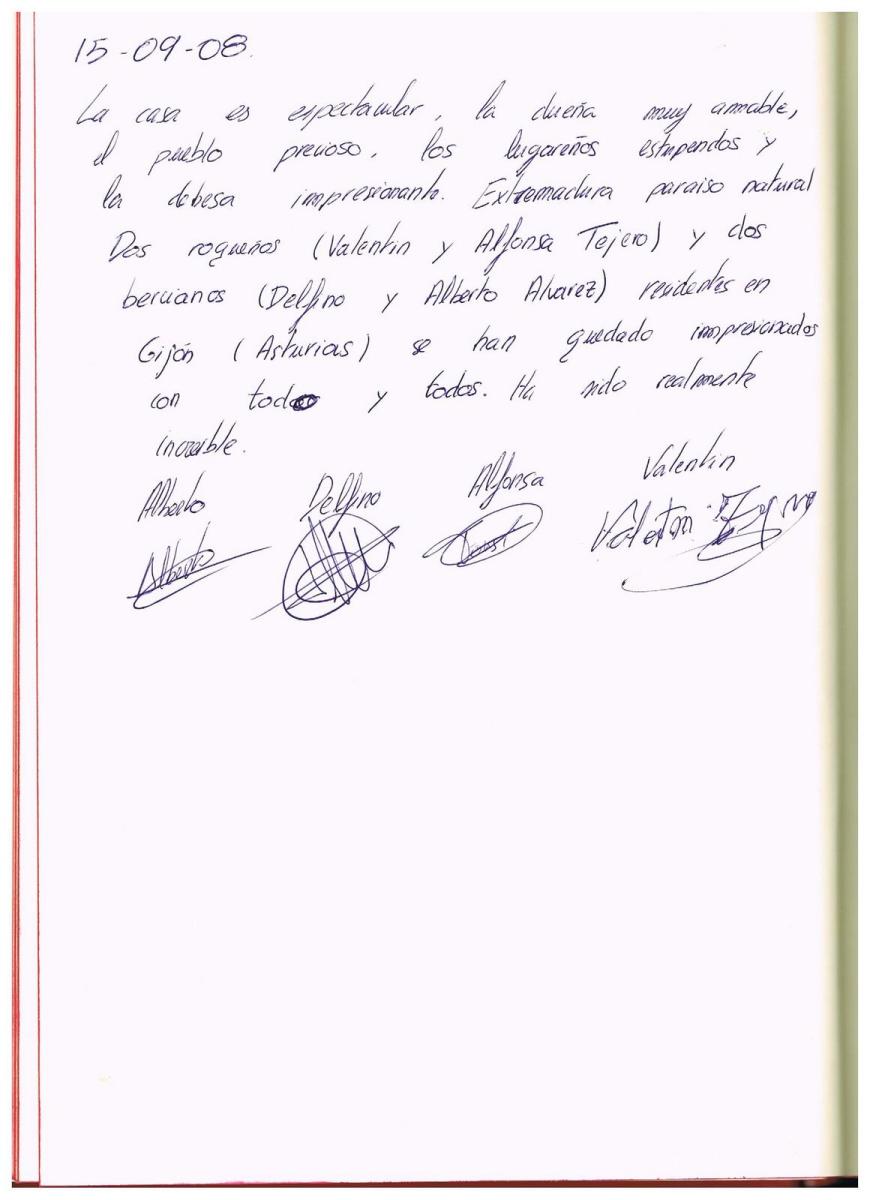 15-09-08.
La casa es espectacular, la dueña muy amable,
el pueblo precioso, los lugareños estupendos y
la dehesa impresionante. Extremadura paraiso natural
Dos roqueños (Valentin y Alfonsa Tejero) y dos
bercianos (Delfino y Alberto Alvarez) residentes en
Gijón (Asturias) se han quedado impresionados
con todo y todos. Ha sido realmente
increible.
Alberto Delfino Alfonsa Valentin
Alberto Valentin